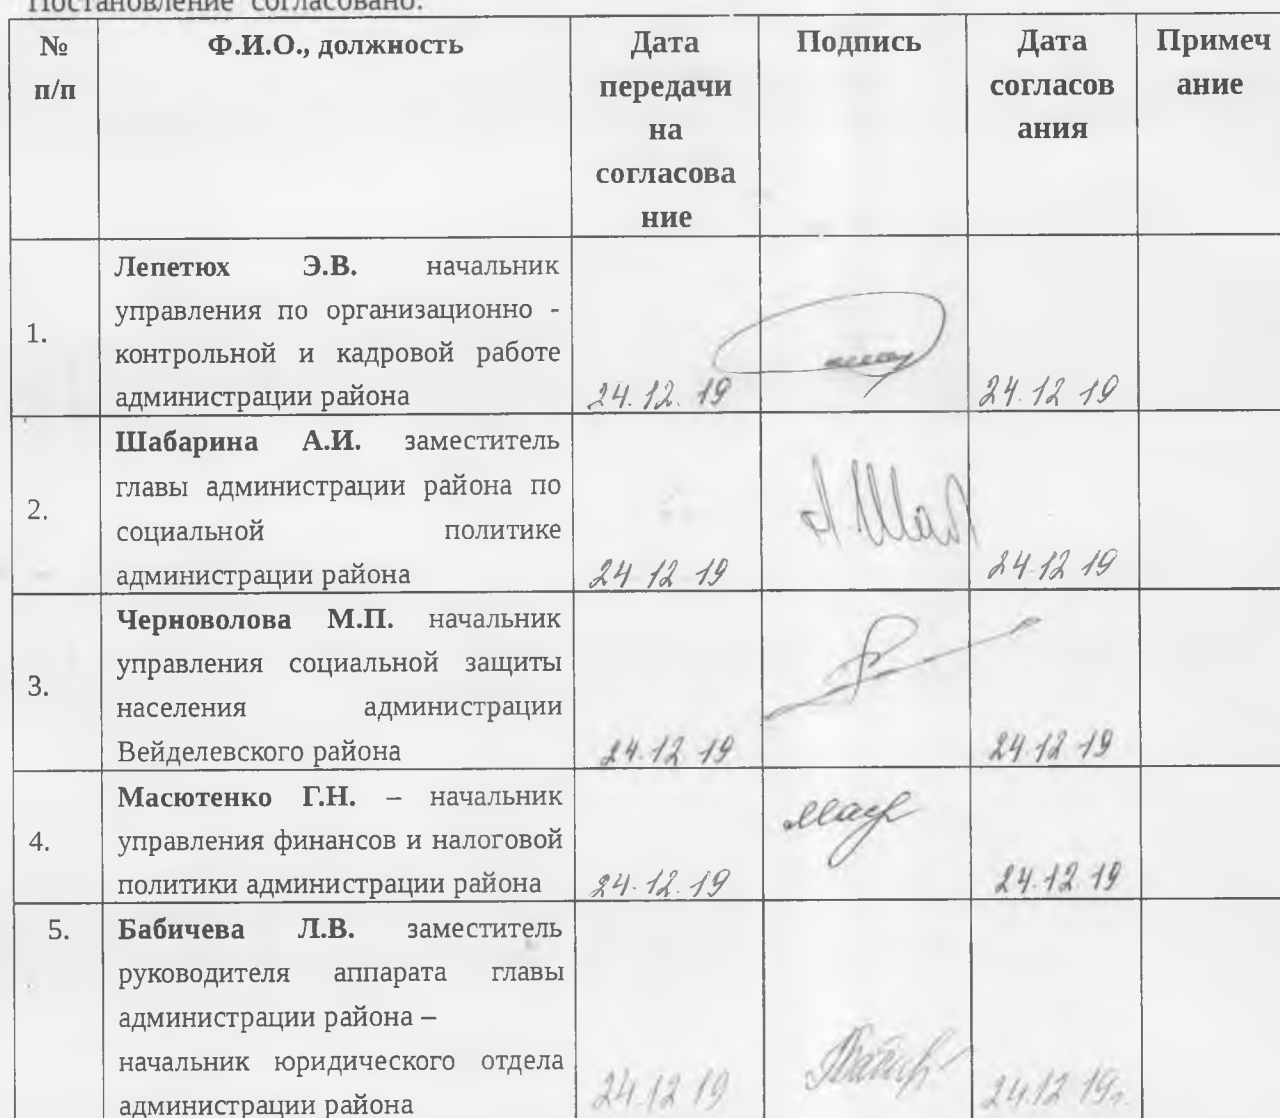 Постановление согласовано:
№ п/п Ф.И.О., должность Дата передачи на согласова ние Подпись Дата согласов ания Примеч ание
1.
Лепетюх Э.В. начальник
управления по организационно -
контрольной и кадровой работе
администрации района
24.12.19
24.12 19
2.
Шабарина А.И. заместитель
главы администрации района по
социальной политике
администрации района
24.12.19
А.Шаб
24.12 19
3.
Черноволова М.П. начальник
управления социальной защиты
населения администрации
Вейделевского района
24.12 19
24 12 19
4.
Масютенко Г.Н. – начальник
управления финансов и налоговой
политики администрации района
24.12.19
24.12.19
5.
Бабичева Л.В. заместитель
руководителя аппарата главы
администрации района –
начальник юридического отдела
администрации района
24.12 19
24.12 19г.